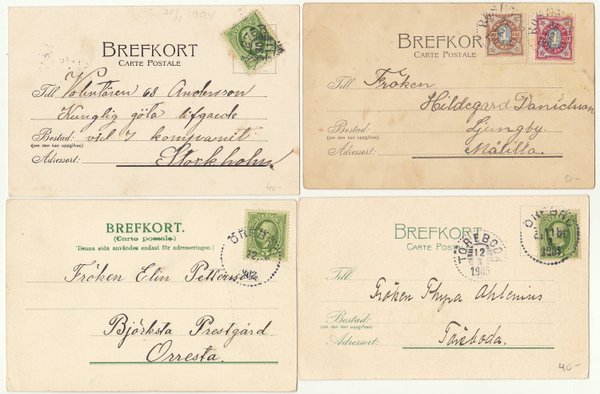 30/11 1904
BREFKORT
CARTE POSTALE
Till Volentären 68 Andersson
Kunglig göta lifgarde
Bostad: vid 7 kompanit
(om den kan uppgifvas)
Adressort: Stockholm
40-
BREFKORT
CARTE POSTALE
Till Fröken
Hildegard Danielsson
Bostad: Ljungby.
(om den kan uppgifvas)
Adressort: Målilla.
50-
BREFKORT.
(Carte postale.)
Denna sida användes endast för adresseringen.
ÖREBRO
Fröken Elin
Björksta Prestgård.
Orresta.
BREFKORT
CARTE POSTALE
TÖREBODA
12
1905
ÖREBRO
Till
Fröken Thyra Ahlenius
Bostad:
(om den kan uppgifvas)
Adressort: Töreboda.
40-